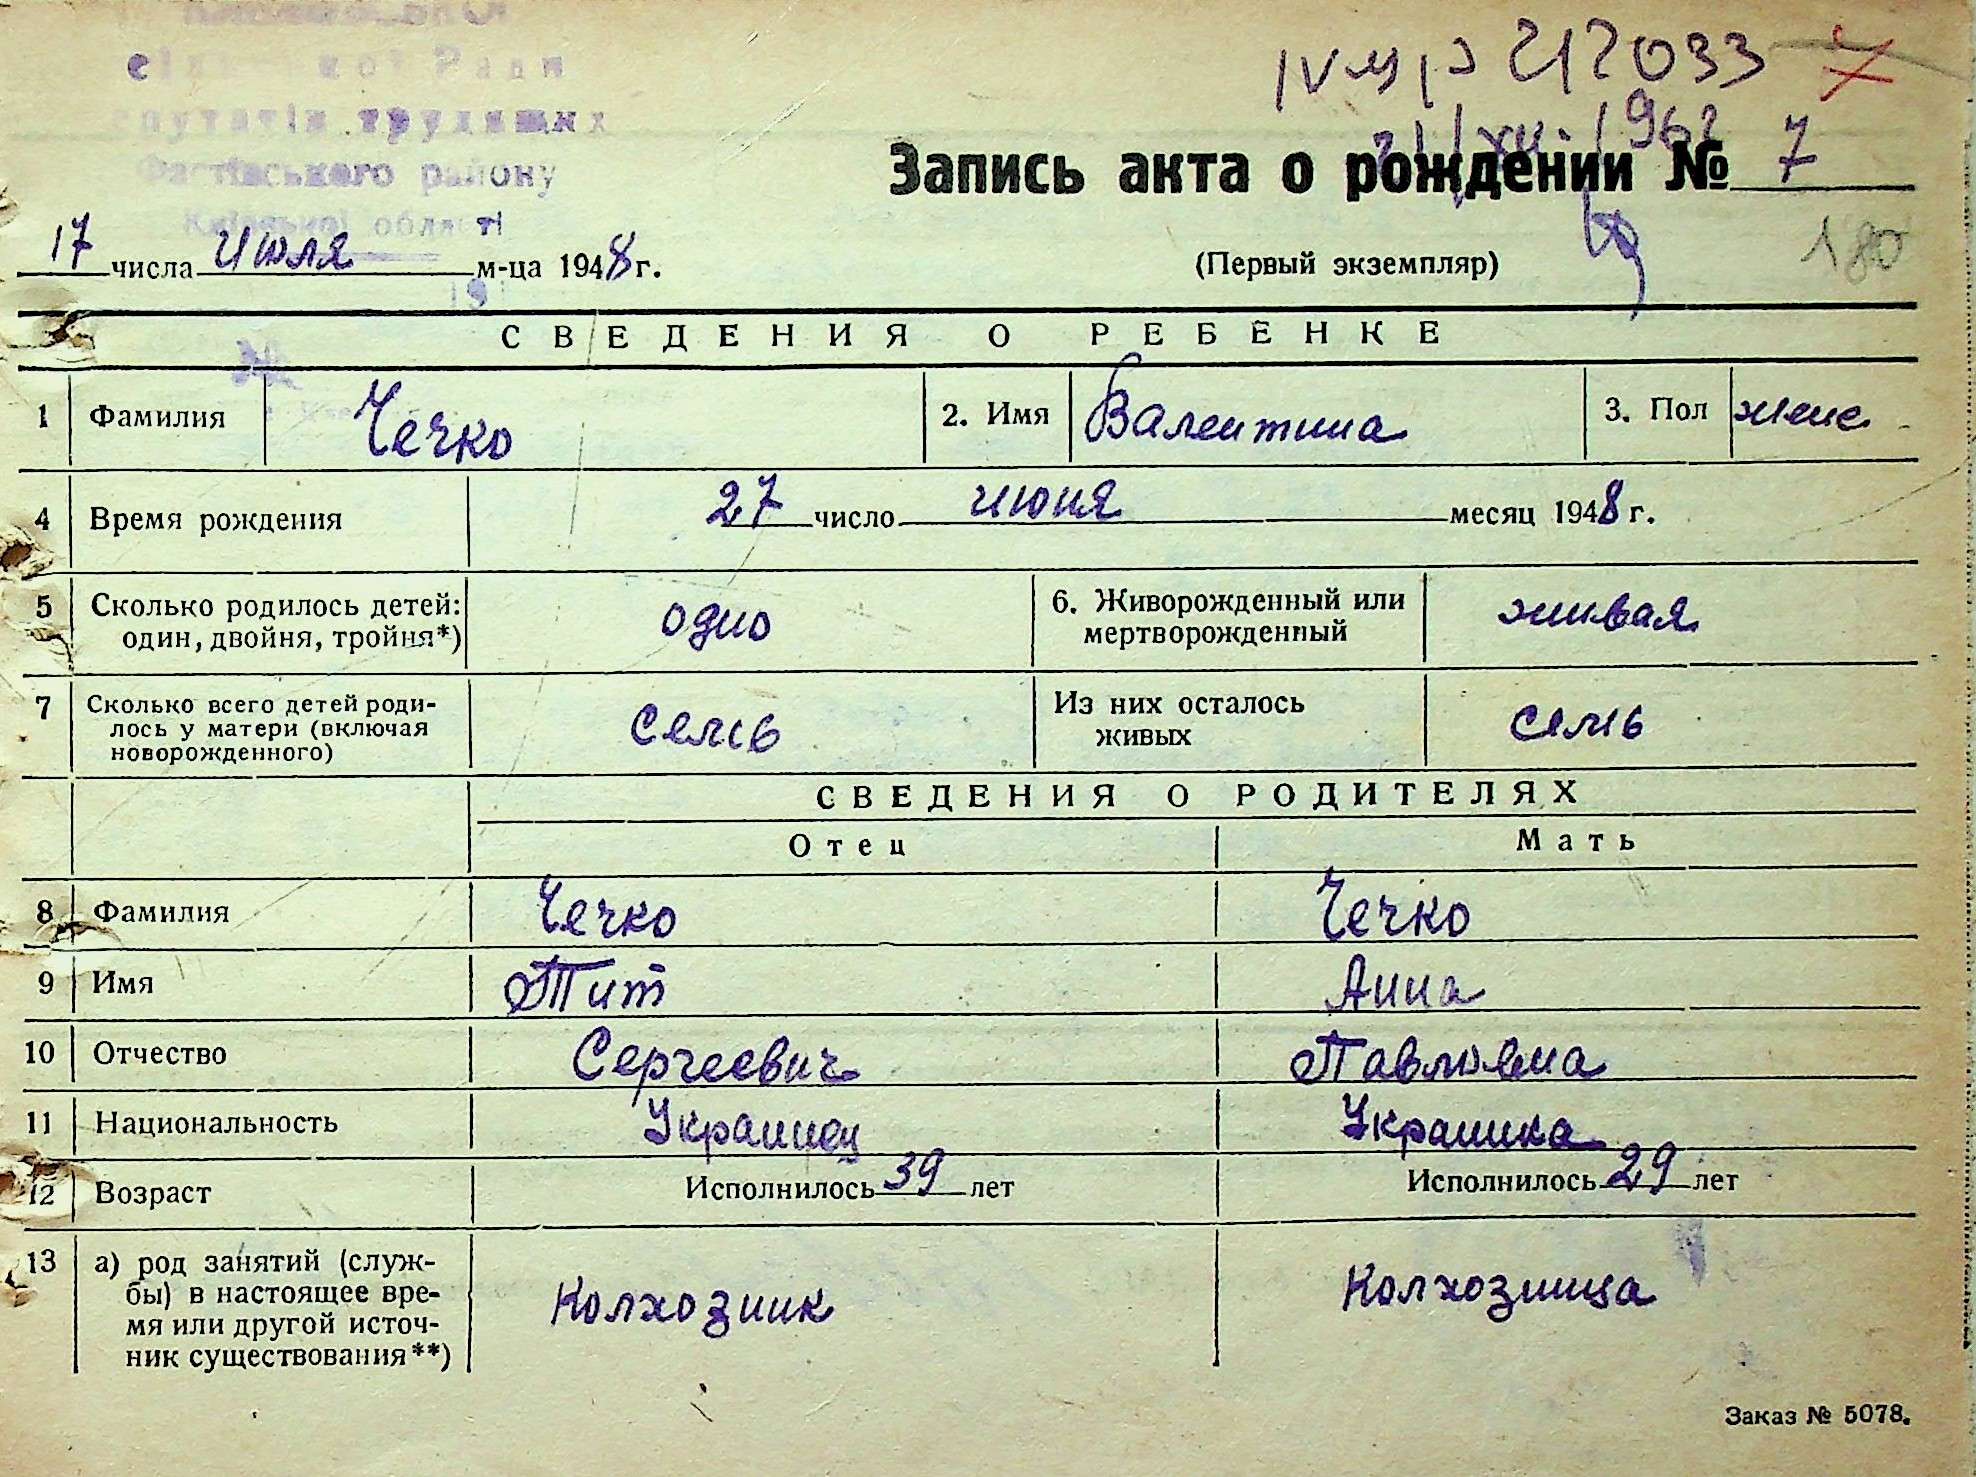 Ради
трудящих
Фастівського району
Київської області
212033
21/XII. 1962
Запись акта о рождении № 7
17 числа июля м-ца 1948 г.
(Первый экземпляр)
180
СВЕДЕНИЯ О РЕБЕНКЕ
1 Фамилия Чечко 2. Имя Валентина 3. Пол женс
4 Время рождения 27 число июня месяц 1948 г.
5 Сколько родилось детей: один, двойня, тройня*) одно 6. Живорожденный или мертворожденный живая
7 Сколько всего детей роди-
лось у матери (включая
новорожденного) семь Из них осталось живых семь
СВЕДЕНИЯ О РОДИТЕЛЯХ
Отец Мать
8 Фамилия Чечко Чечко
9 Имя Тит Анна
10 Отчество Сергеевич Павловна
11 Национальность Украинец Украинка
12 Возраст Исполнилось 39 лет Исполнилось 29 лет
13 а) род занятий (служ-
бы) в настоящее вре-
мя или другой источ-
ник существования**) Колхозник Колхозница
Заказ № 5078.